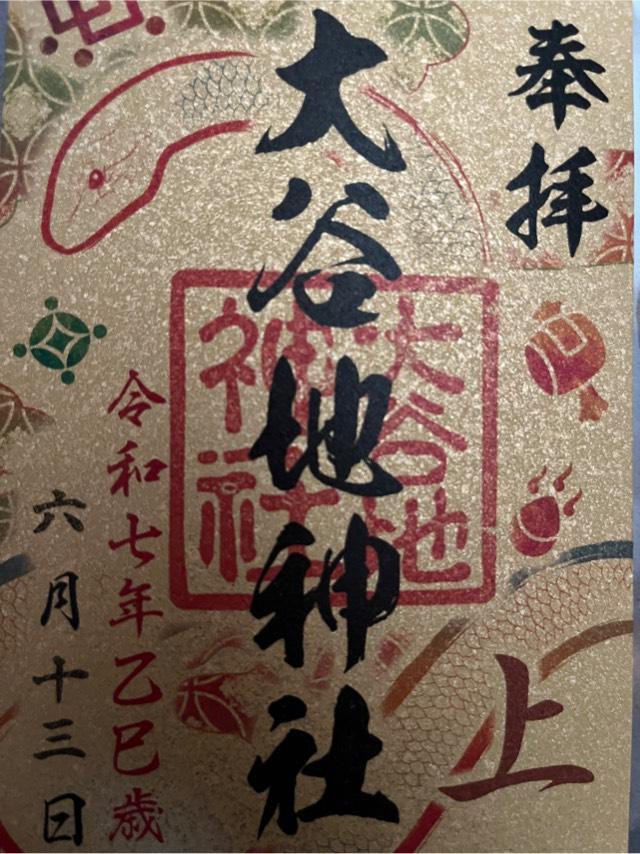 奉拝
上
大谷地神社
大谷地
神社
令和七年乙巳歳
六月十三日